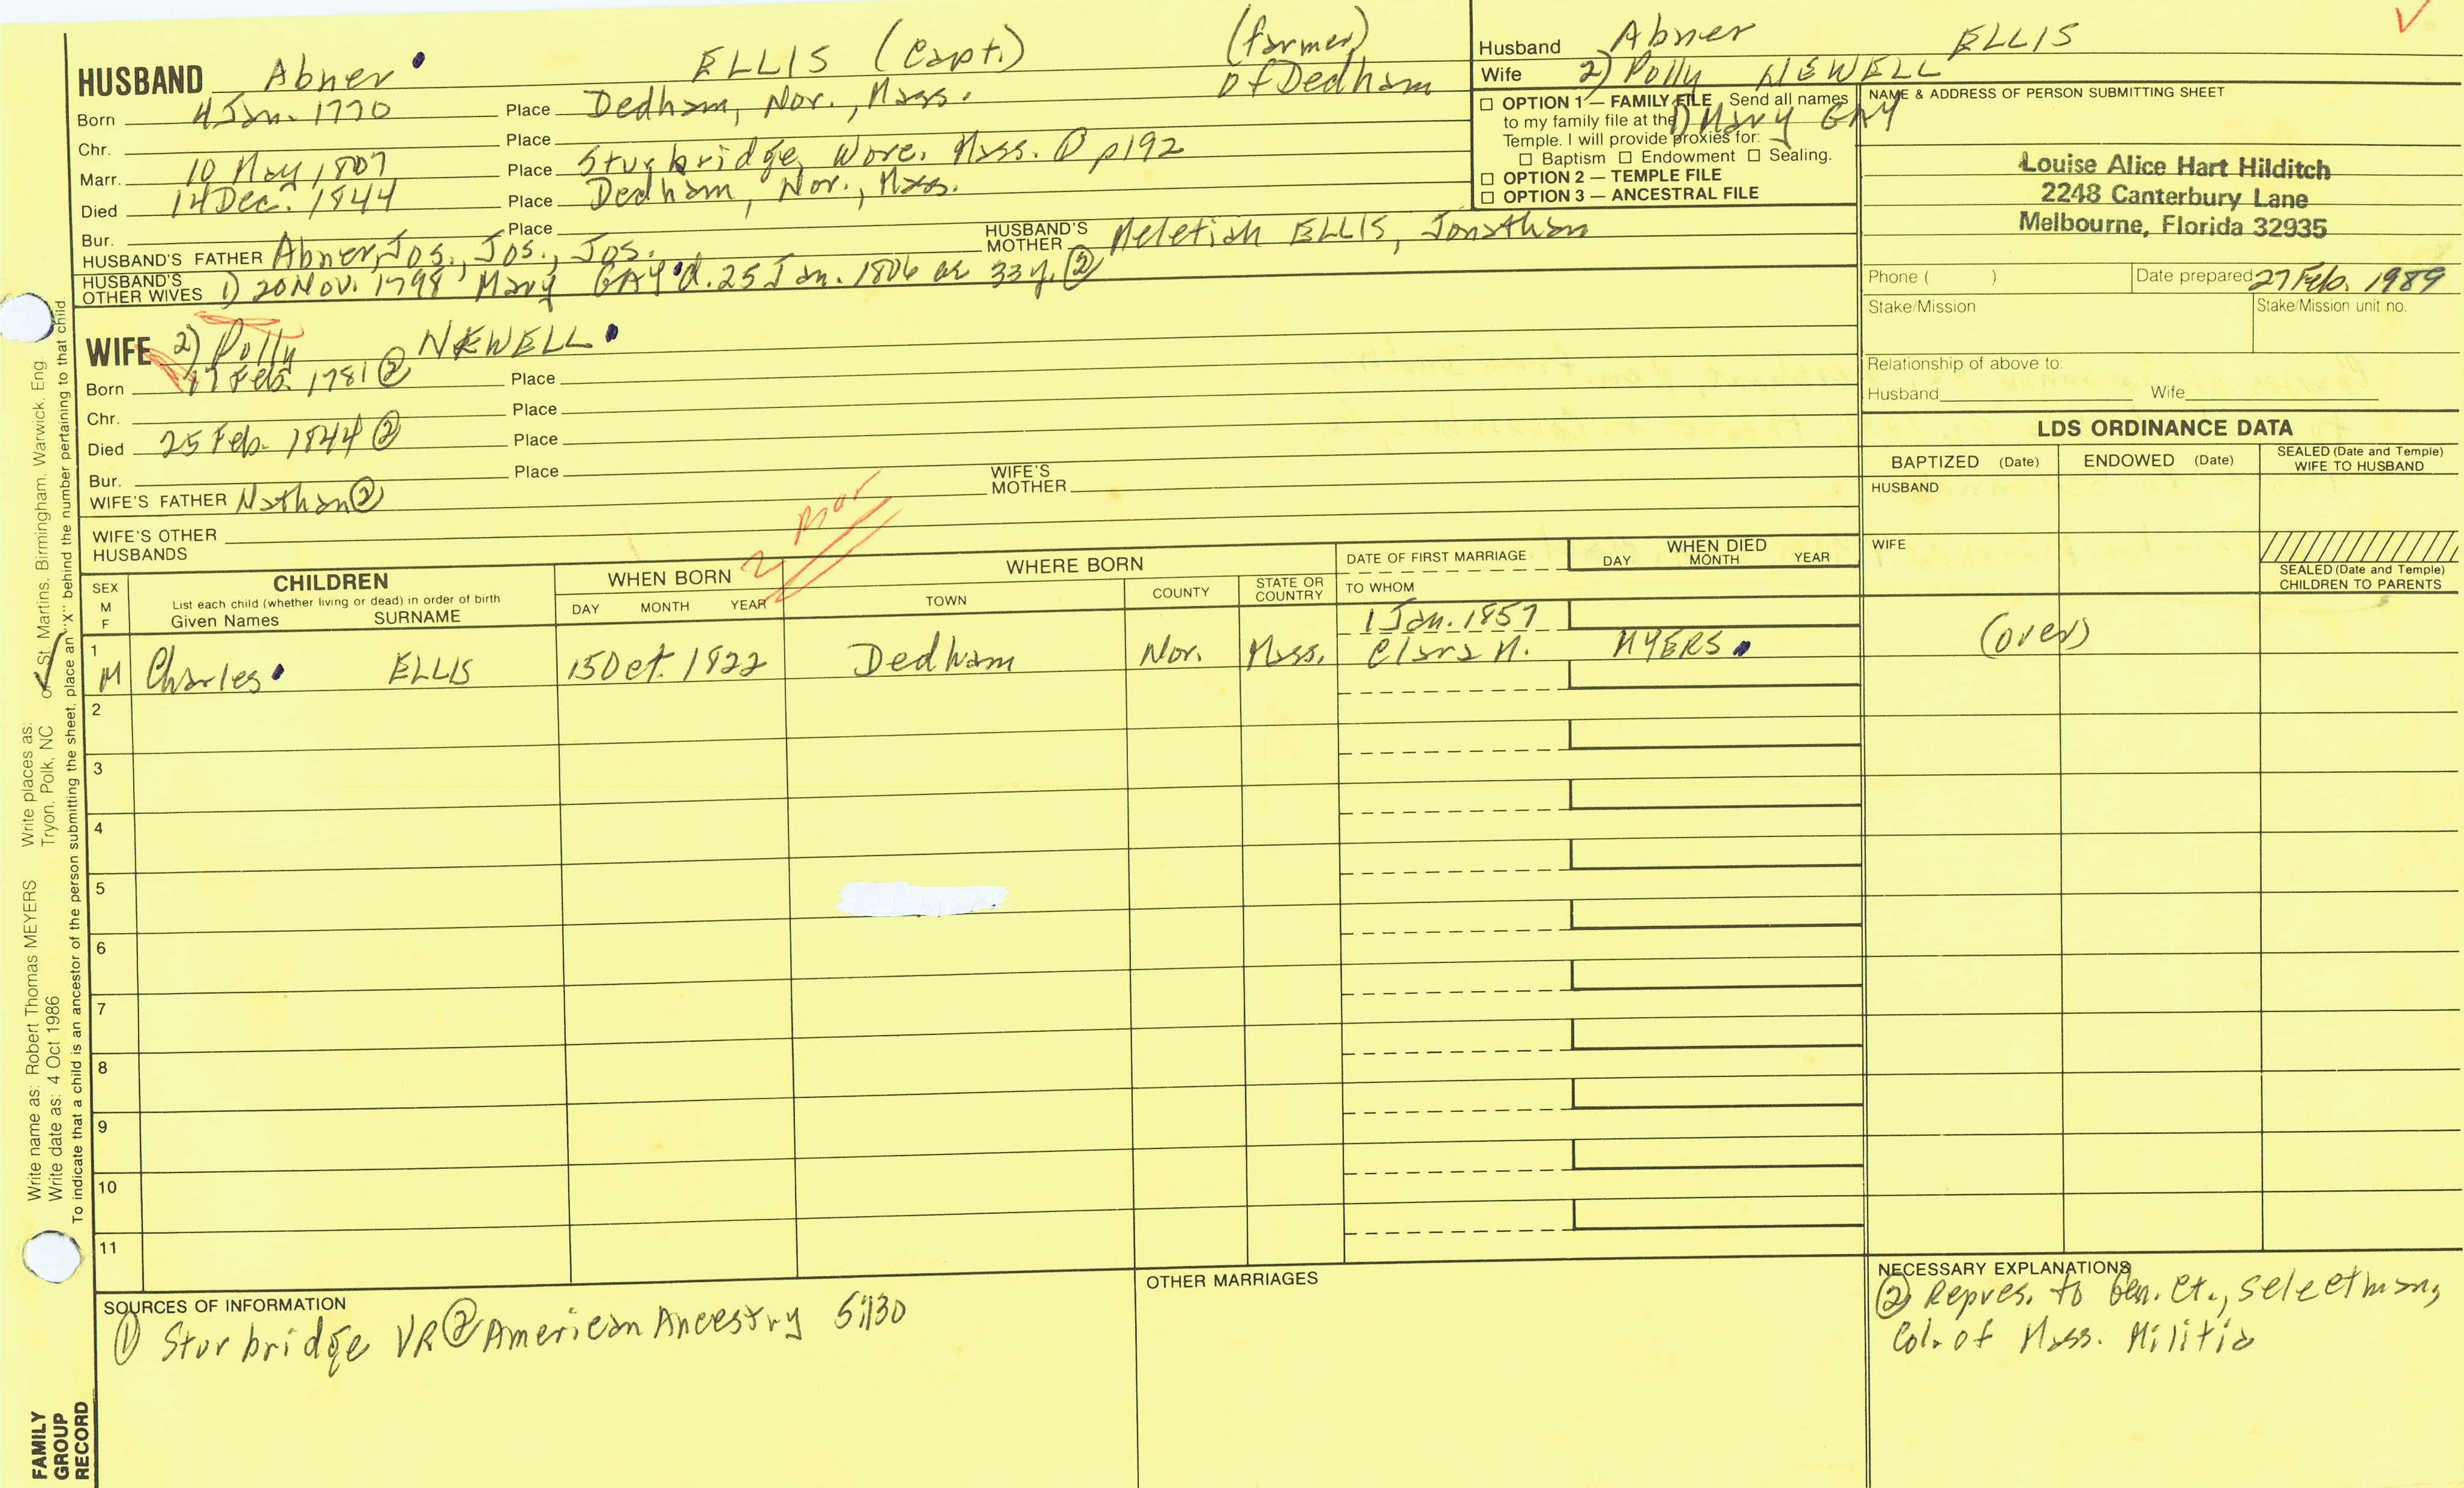 HUSBAND Abner ELLIS (Capt.) (farmer) of Dedham
Born 4 Jan. 1770 Place Dedham, Nor., Mass.
Chr. Place
Marr. 10 May 1807 Place Sturbridge, Worc. Mass. ① p192
Died 14 Dec. 1844 Place Dedham, Nor., Mass.
Bur. Place
HUSBAND'S FATHER Abner, Jos., Jos., Jos. HUSBAND'S MOTHER Meletiah ELLIS, Jonathan
HUSBAND'S OTHER WIVES 1) 20 Nov. 1798 Mary GAY d. 25 Jan. 1806 ae 33y. ②
WIFE 2) Polly NEWELL
Born 17 Feb. 1781 ② Place
Chr. Place
Died 25 Feb. 1844 ② Place
Bur. Place
WIFE'S FATHER Nathan ② WIFE'S MOTHER
WIFE'S OTHER HUSBANDS
2 mar
Husband Abner ELLIS
Wife 2) Polly NEWELL
1) Mary GAY
☐ OPTION 1 — FAMILY FILE Send all names
to my family file at the
Temple. I will provide proxies for:
☐ Baptism ☐ Endowment ☐ Sealing.
☐ OPTION 2 — TEMPLE FILE
☐ OPTION 3 — ANCESTRAL FILE
NAME & ADDRESS OF PERSON SUBMITTING SHEET
Louise Alice Hart Hilditch
2248 Canterbury Lane
Melbourne, Florida 32935
Phone ( ) Date prepared 27 Feb. 1989
Stake/Mission Stake/Mission unit no.
Relationship of above to:
Husband Wife
LDS ORDINANCE DATA
BAPTIZED (Date) ENDOWED (Date) SEALED (Date and Temple) WIFE TO HUSBAND
HUSBAND
WIFE
SEALED (Date and Temple)
CHILDREN TO PARENTS
SEX M F
CHILDREN
List each child (whether living or dead) in order of birth
Given Names SURNAME
WHEN BORN
DAY MONTH YEAR
WHERE BORN
TOWN COUNTY STATE OR COUNTRY
DATE OF FIRST MARRIAGE
TO WHOM
WHEN DIED
DAY MONTH YEAR
1 M Charles ELLIS 15 Oct. 1822 Dedham Nor. Mass. 1 Jan. 1857 Clara M. MYERS (over)
2
3
4
5
6
7
8
9
10
11
SOURCES OF INFORMATION
① Sturbridge VR ② American Ancestry 5:130
OTHER MARRIAGES
NECESSARY EXPLANATIONS
② Repres. to Gen. Ct., selectman,
Col. of Mass. Militia
Write name as: Robert Thomas MEYERS Write places as:
Write date as: 4 Oct 1986 Tryon, Polk, NC or St. Martins, Birmingham, Warwick, Eng.
To indicate that a child is an ancestor of the person submitting the sheet, place an "X" behind the number pertaining to that child
FAMILY
GROUP
RECORD